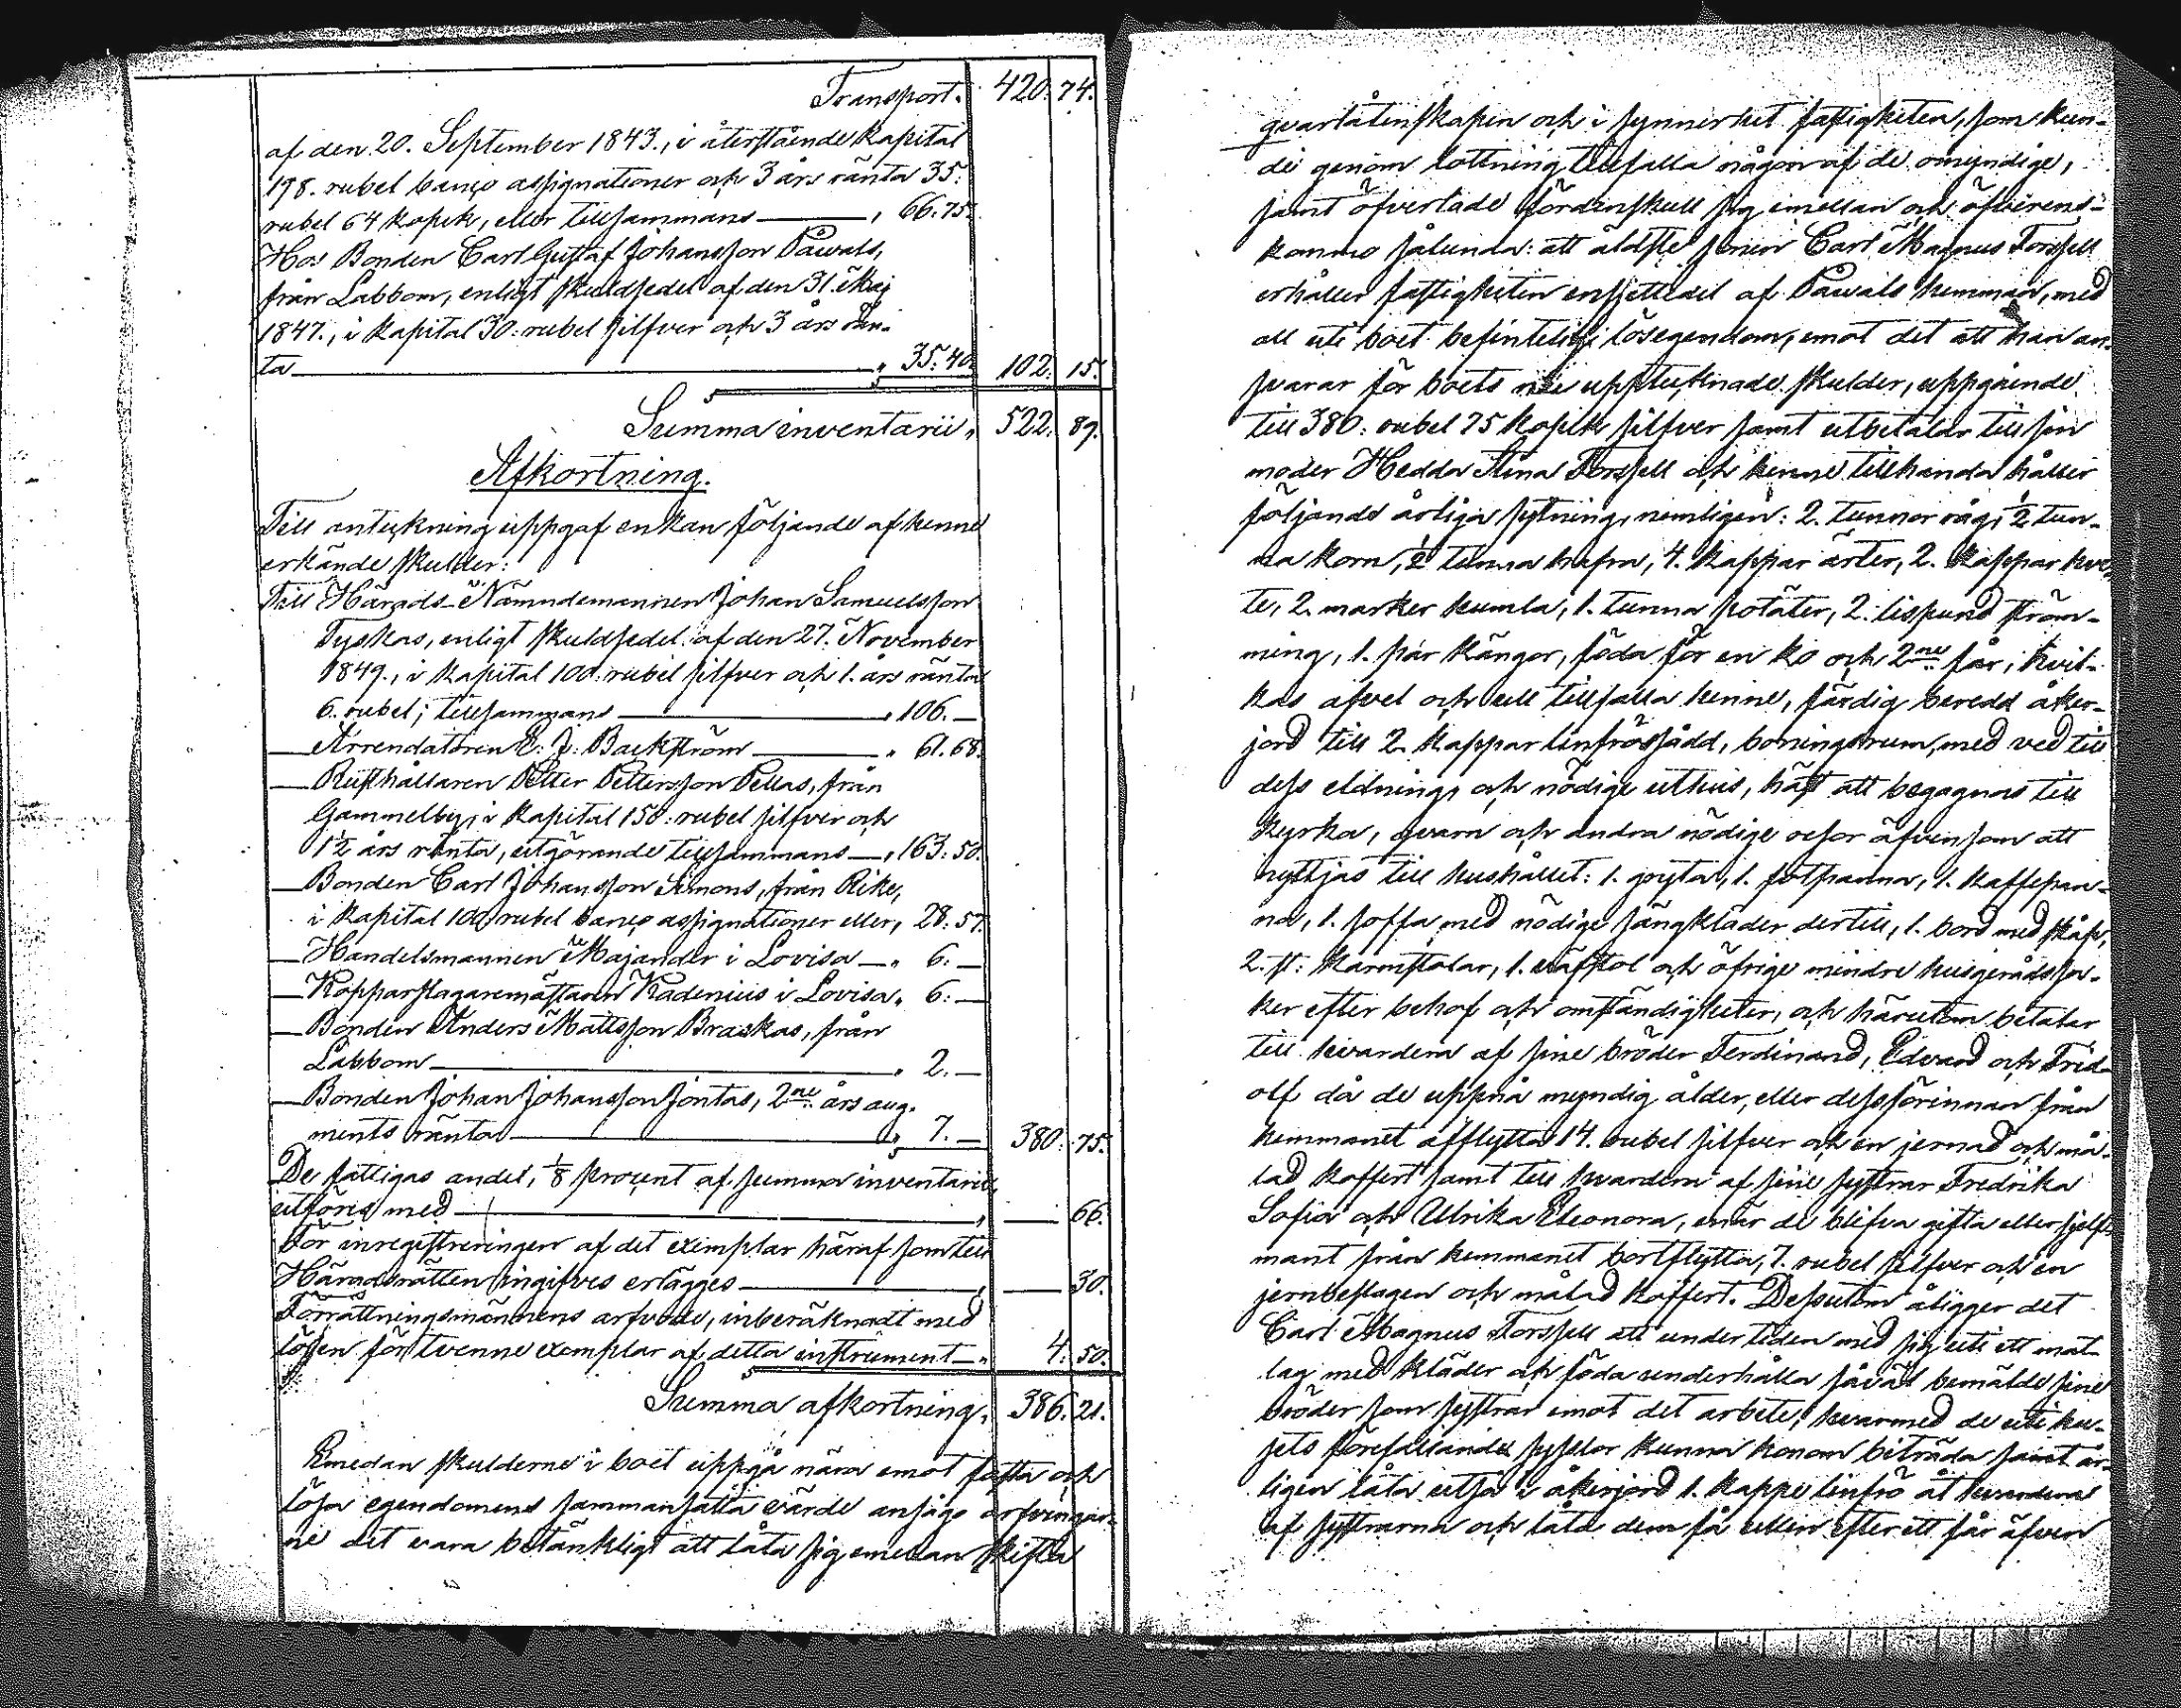 Transport. 420. 74.
af den 20. September 1843., i återstående kapital
198. rubel banco assignationer och 3 års ränta 35.
rubel 64 kopek, eller tillsammans — , 66. 75.
Hos Bonden Carl Gustaf Johansson Påwals,
från Labbom, enligt skuldsedel af den 31. Maj
1847., i kapital 30. rubel silfver och 3 års rän-
ta — „ 35. 40. 102. 15.
Summa inventarii, 522. 89.
Afkortning.
Till anteckning uppgaf enkan följande af henne
erkände skulder:
Till Härads-Nämndemannen Johan Samuelsson
Tyskas, enligt skuldsedel af den 27. November
1849., i kapital 100. rubel silfver och 1. års ränta
6. rubel; tillsammans — „ 106. —
— Arrendatoren E: J: Backström — „ 61. 68.
— Rusthållaren Petter Pettersson Pellas, från
Gammelby, i kapital 150. rubel silfver och
1½ års ränta, utgörande tillsammans — „ 163. 50.
— Bonden Carl Johansson Simons, från Rike,
i kapital 100 rubel banco assignationer eller, 28. 57.
— Handelsmannen Majander i Lovisa — „ 6. —
— Kopparslagaremästaren Kadenius i Lovisa „ 6. —
— Bonden Anders Mattsson Braskas, från
Labbom — „ 2. —
— Bonden Johan Johansson Jontas, 2ne års aug-
ments ränta — „ 7. — 380. 75.
De fattigas andel, 1/8 procent af summa inventarii,
utföres med — „ — 66.
För inregistreringen af det exemplar häraf som till
Häradsrätten ingifves erlägges — „ — 30.
Förrättningsmännens arfvode, inberäknadt med
lösen för tvenne exemplar af detta instrument — „ 4. 50.
Summa afkortning. 386. 21.
Emedan skulderne i boet uppgå nära emot fasta och
lösa egendomens sammansatta värde ansågo arfvingar-
ne det vara betänkligt att låta sig emellan skifta
qvarlåtenskapen och i synnerhet fastigheten, som kun-
de genom lottning tillfalla någon af de omyndige,
samt öfverlade fördenskull sig emellan och öfverens-
kommo sålunda: att äldste sonen Carl Magnus Forssell
erhåller fastigheten ensjettedel af Påwals hemman, med
all uti boet befintelig lösegendom, emot det att han an-
svarar för boets nu upptecknade skulder, uppgående
till 380. rubel 75 kopek silfver samt utbetalar till sin
moder Hedda Stina Forssell och henne tillhanda håller
följande årliga sytning, nemligen: 2. tunnor råg, ½ tun-
na korn, ½ tunna hafra, 4. kappar ärter, 2. kappar hve-
te, 2. marker humla, 1. tunna potäter, 2. lispund ström-
ming, 1. par kängor, föda för en ko och 2ne får, hvil-
kas afvel och ull tillfalla henne, färdig beredd åker-
jord till 2. kappar linfrösådd, boningsrum, med ved till
dess eldning, och nödige uthus, häst att begagnas till
kyrka, qvarn och andra nödige resor äfvensom att
nyttjas till hushållet: 1. gryta, 1. fotpanna, 1. kaffepan-
na, 1. soffa med nödige sängkläder dertill, 1. bord med skåp,
2. st: karmstolar, 1. väfstol och öfrige mindre husgerådssa-
ker efter behof och omständigheter, och härutom betalar
till hvardera af sine bröder Ferdinand, Edvard och Frid-
olf då de uppnå myndig ålder, eller dessförinnan från
hemmanet afflytta 14. rubel silfver och en jernad och må-
lad koffert samt till hvardera af sine systrar Fredrika
Sofia och Ulrika Eleonora, enär de blifva gifta eller sjelf-
mant från hemmanet bortflytta, 7. rubel silfver och en
jernbeslagen och målad koffert. Dessutom åligger det
Carl Magnus Forssell att under tiden med sig uti ett mat-
lag med kläder och föda underhålla såväl bemälde sine
bröder som systrar emot det arbete, hvarmed de uti hu-
sets förefallande sysslor kunna honom biträda samt år-
ligen låta utså i åkerjord 1. kappe linfrö åt hvardera
af systrarna och låta dem få ullen efter ett får äfven